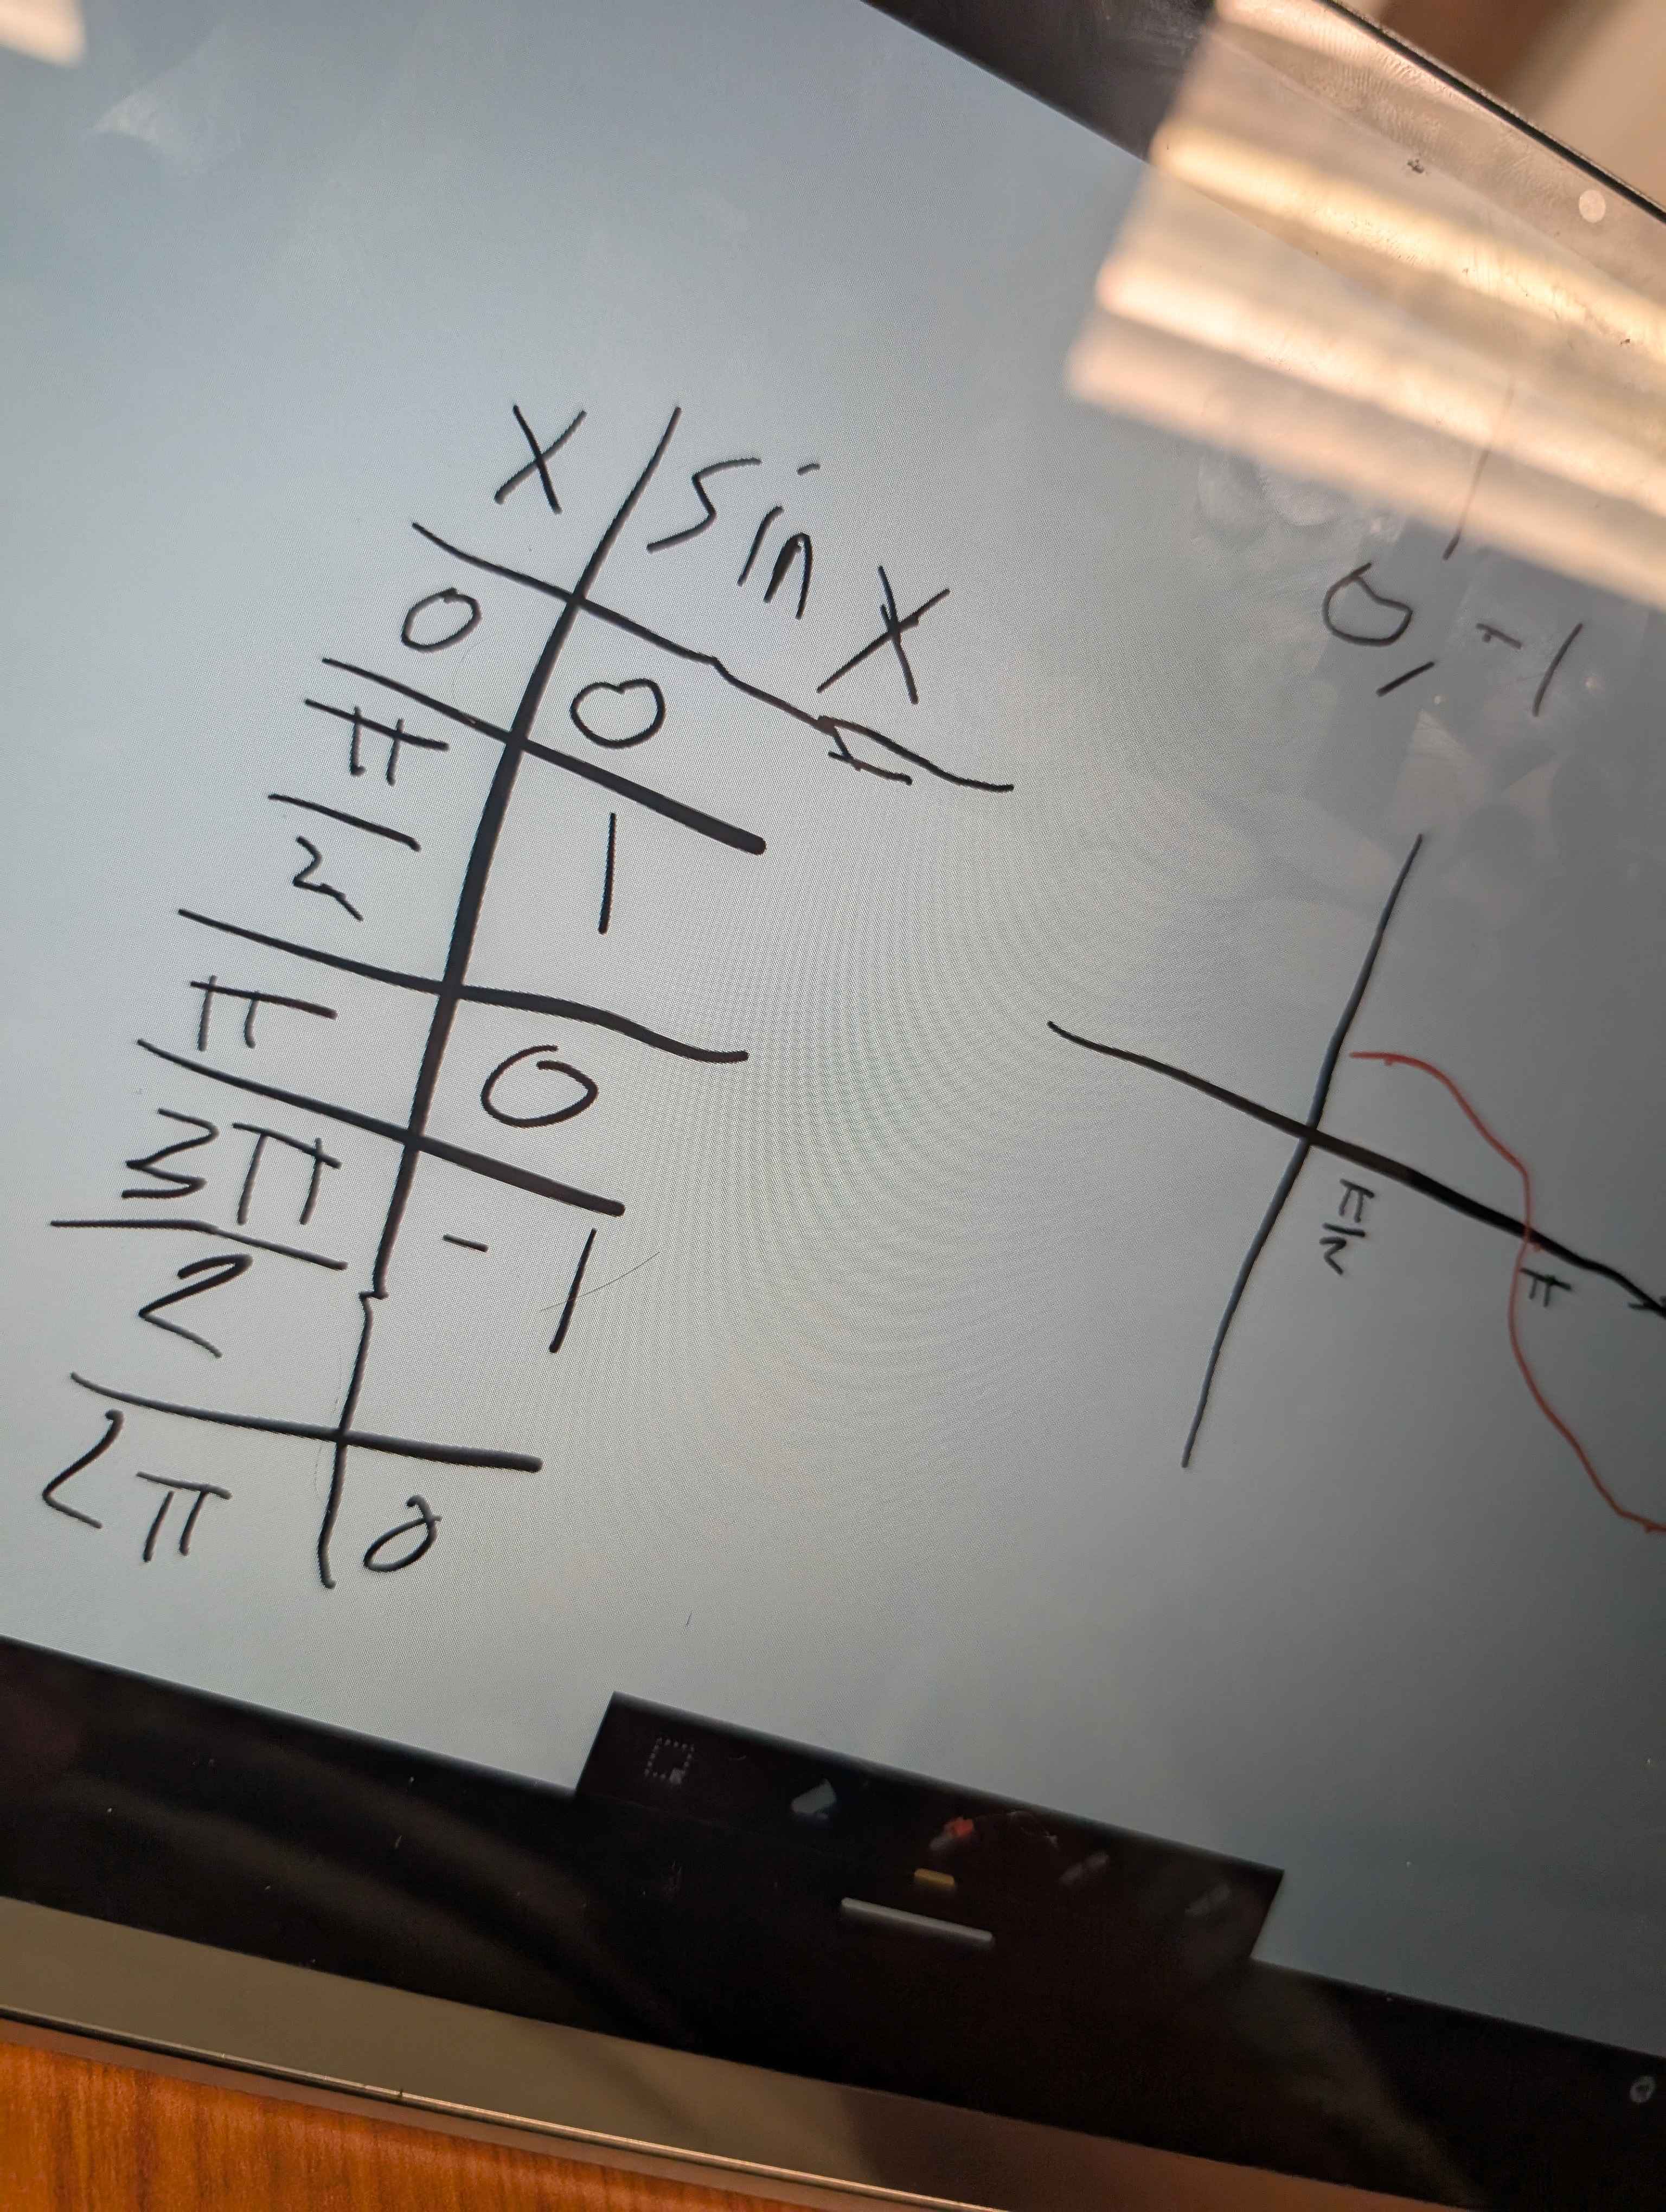 x sin x
0 0
π/2 1
π 0
3π/2 -1
2π 0
0, -1
π/2 π